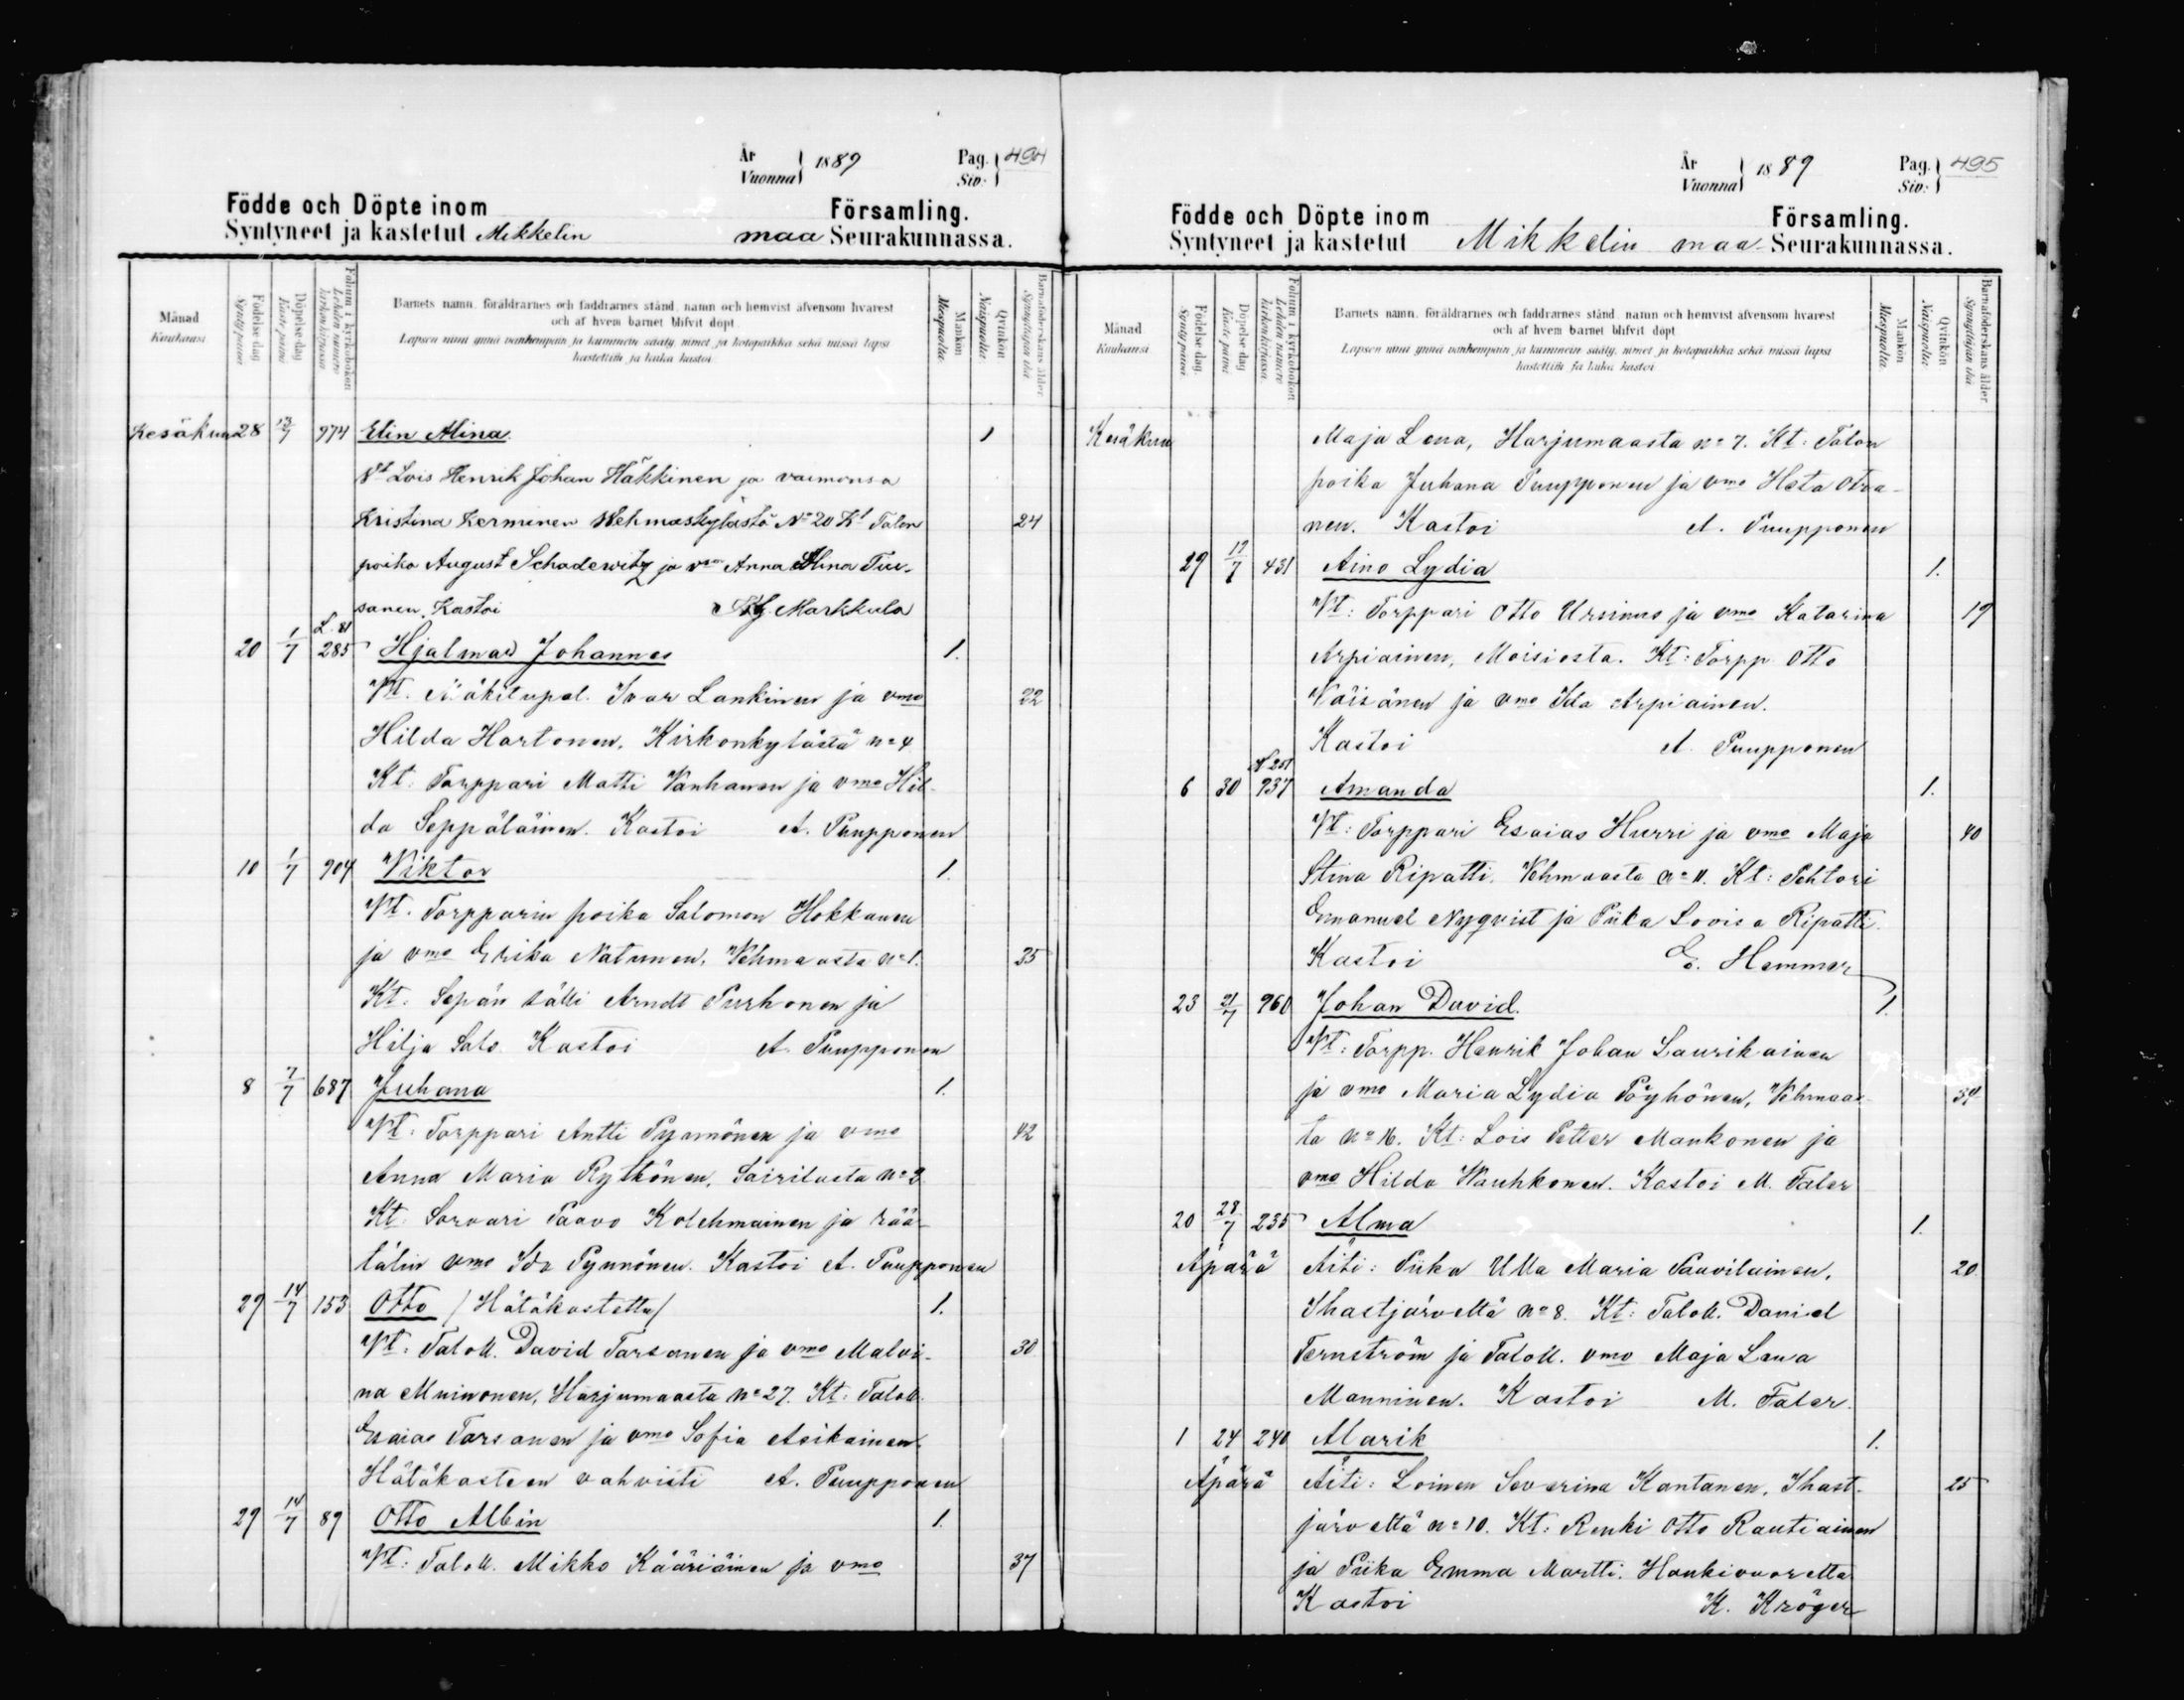 År
Vuonna } 1889
Pag.
Siv: } 494
Födde och Döpte inom Församling.
Syntyneet ja kastetut Mikkelin maa Seurakunnassa.
Månad
Kuukausi
Födelse-dag.
Syntypäivä.
Döpelse-dag.
Kaste-päivä.
Folium i kyrkoboken
Lehden numero kirkonkirjassa
Barnets namn, föräldrarnes och faddrarnes stånd, namn och hemvist äfvensom hvarest
och af hvem barnet blifvit döpt.
Lapsen nimi ynnä vanhempain ja kummein sääty, nimet ja kotopaikka sekä missä lapsi
kastettiin ja kuka kastoi.
Mankön
Miespuolta.
Qvinkön
Naispuolta.
Barnaföderskans ålder
Synnyttäjän ikä
Kesäkuu 28 13/7 974 Elin Alina. 1
Vt Lois Henrik Johan Häkkinen ja vaimonsa
Kristina Kerminen Wehmaskylästä No 20 Kt Talon 24
poika August Schadewitz ja vmo Anna Alina Tuu-
sanen. Kastoi Markkula
L. 81
20 1/7 285 Hjalmar Johannes 1.
Vt. Mäkitupal. Ivar Lankinen ja vmo 22
Hilda Hartonen, Kirkonkylästä no 4
Kt. Torppari Matti Vanhanen ja vmo Hil-
da Seppäläinen. Kastoi A. Puupponen
10 1/7 904 Viktor 1.
Vt. Torpparin poika Salomon Hokkanen
ja vmo Erika Natunen, Vehmaasta no 1. 35
Kt. Sepän sälli Arndt Purhonen ja
Hilja Salo. Kastoi A. Puupponen
8 7/7 687 Juhana 1.
Vt: Torppari Antti Pynnönen ja vmo 42
Anna Maria Rytkönen, Sairilasta no 2
Kt. Sorvari Paavo Kolehmainen ja rää-
tälin vmo Ida Pynnönen. Kastoi A. Puupponen
29 14/7 153 Otto /Hätäkastettu/ 1.
Vt: Taloll. David Tarsanen ja vmo Malvi- 30
na Muinonen, Harjumaasta no 27. Kt: Taloll.
Esaias Tarsanen ja vmo Sofia Asikainen.
Hätäkasteen vahvisti A. Puupponen
29 14/7 89 Otto Albin 1.
Vt: Taloll. Mikko Kääriäinen ja vmo 37
År
Vuonna } 1889
Pag.
Siv: } 495
Födde och Döpte inom Församling.
Syntyneet ja kastetut Mikkelin maa- Seurakunnassa.
Månad
Kuukausi
Födelse-dag.
Syntypäivä.
Döpelse-dag
Kaste-päivä
Folium i kyrkoboken
Lehden numero kirkonkirjassa
Barnets namn, föräldrarnes och faddrarnes stånd, namn och hemvist äfvensom hvarest
och af hvem barnet blifvit döpt
Lapsen nimi ynnä vanhempain ja kummein sääty, nimet ja kotopaikka sekä missä lapsi
kastettiin ja kuka kastoi
Mankön
Miespuolta.
Qvinkön
Naispuolta
Barnaföderskans ålder
Synnyttäjän ikä
Kesäkuu Maja Lena, Harjumaasta no 7. Kt: Talon
poika Juhana Puupponen ja vmo Heta Otra-
nen. Kastoi A. Puupponen
29 17/7 431 Aino Lydia 1.
Vt: Torppari Otto Ursinus ja vmo Katarina 19
Arpiainen, Moisiosta. Kt: Torpp. Otto
Väisänen ja vmo Ida Arpiainen.
Kastoi A. Puupponen
6 30 937 Amanda 1.
Vt: Torppari Esaias Hurri ja vmo Maja 40
Stina Ripatti, Vehmaasta no 11. Kt: Pehtori
Emanuel Nyqvist ja Piika Lovisa Ripatti.
Kastoi E. Hemmer
23 21/7 960 Johan David. 1.
Vt: Torpp. Henrik Johan Laurikainen
ja vmo Maria Lydia Pöyhönen, Vehmaas- 34
ta no 16. Kt: Lois Petter Mankonen ja
vmo Hilda Vauhkonen. Kastoi M. Faler
20 28/7 235 Alma 1.
Äpärä Äiti: Piika Ulla Maria Paavilainen, 20
Ihastjärveltä no 8. Kt: Taloll. Daniel
Fernström ja Taloll. vmo Maja Lena
Manninen. Kastoi M. Faler.
1 24 240 Alarik 1.
Äpärä Äiti: Loinen Severina Kantanen, Ihast- 25
järveltä no 10. Kt: Renki Otto Rautiainen
ja Piika Emma Martti, Haukivuorelta
Kastoi K. Kröger